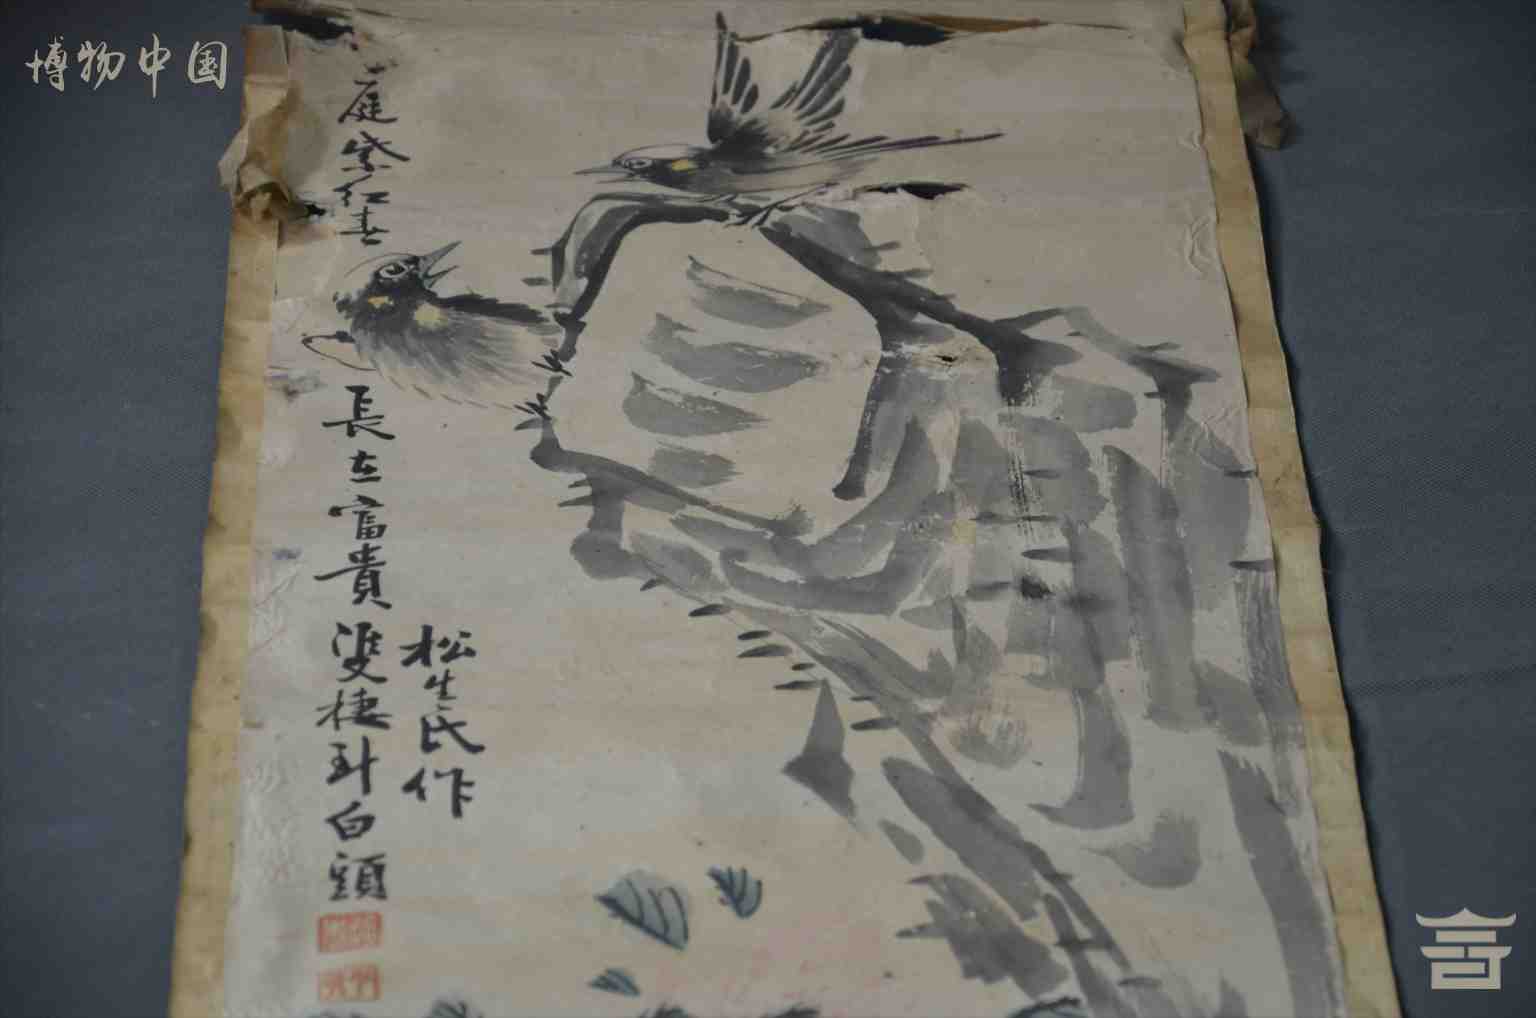 博物中国
庭紫红春
長在富貴
雙棲到白頭
松生氏作